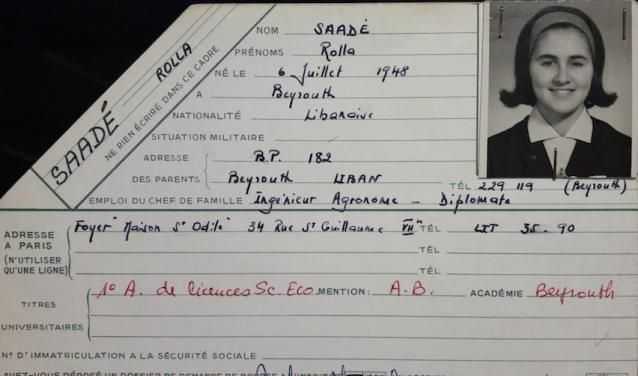 SAADÉ
ROLLA
NE RIEN ÉCRIRE DANS CE CADRE
NOM SAADÉ
PRÉNOMS Rolla
NÉ LE 6 Juillet 1948
A Beyrouth
NATIONALITÉ Libanaise
SITUATION MILITAIRE
ADRESSE B.P. 182
DES PARENTS Beyrouth LIBAN TÉL 229 119 (Beyrouth)
EMPLOI DU CHEF DE FAMILLE Ingénieur Agronome - Diplomate
ADRESSE Foyer "Maison St Odile" 34 Rue St Guillaume VII TÉL LIT 35-90
A PARIS
(N'UTILISER TÉL
QU'UNE LIGNE) TÉL
TITRES 1° A. de licences Sc. Eco. MENTION: A.B. ACADÉMIE Beyrouth
UNIVERSITAIRES
N° D'IMMATRICULATION A LA SÉCURITÉ SOCIALE